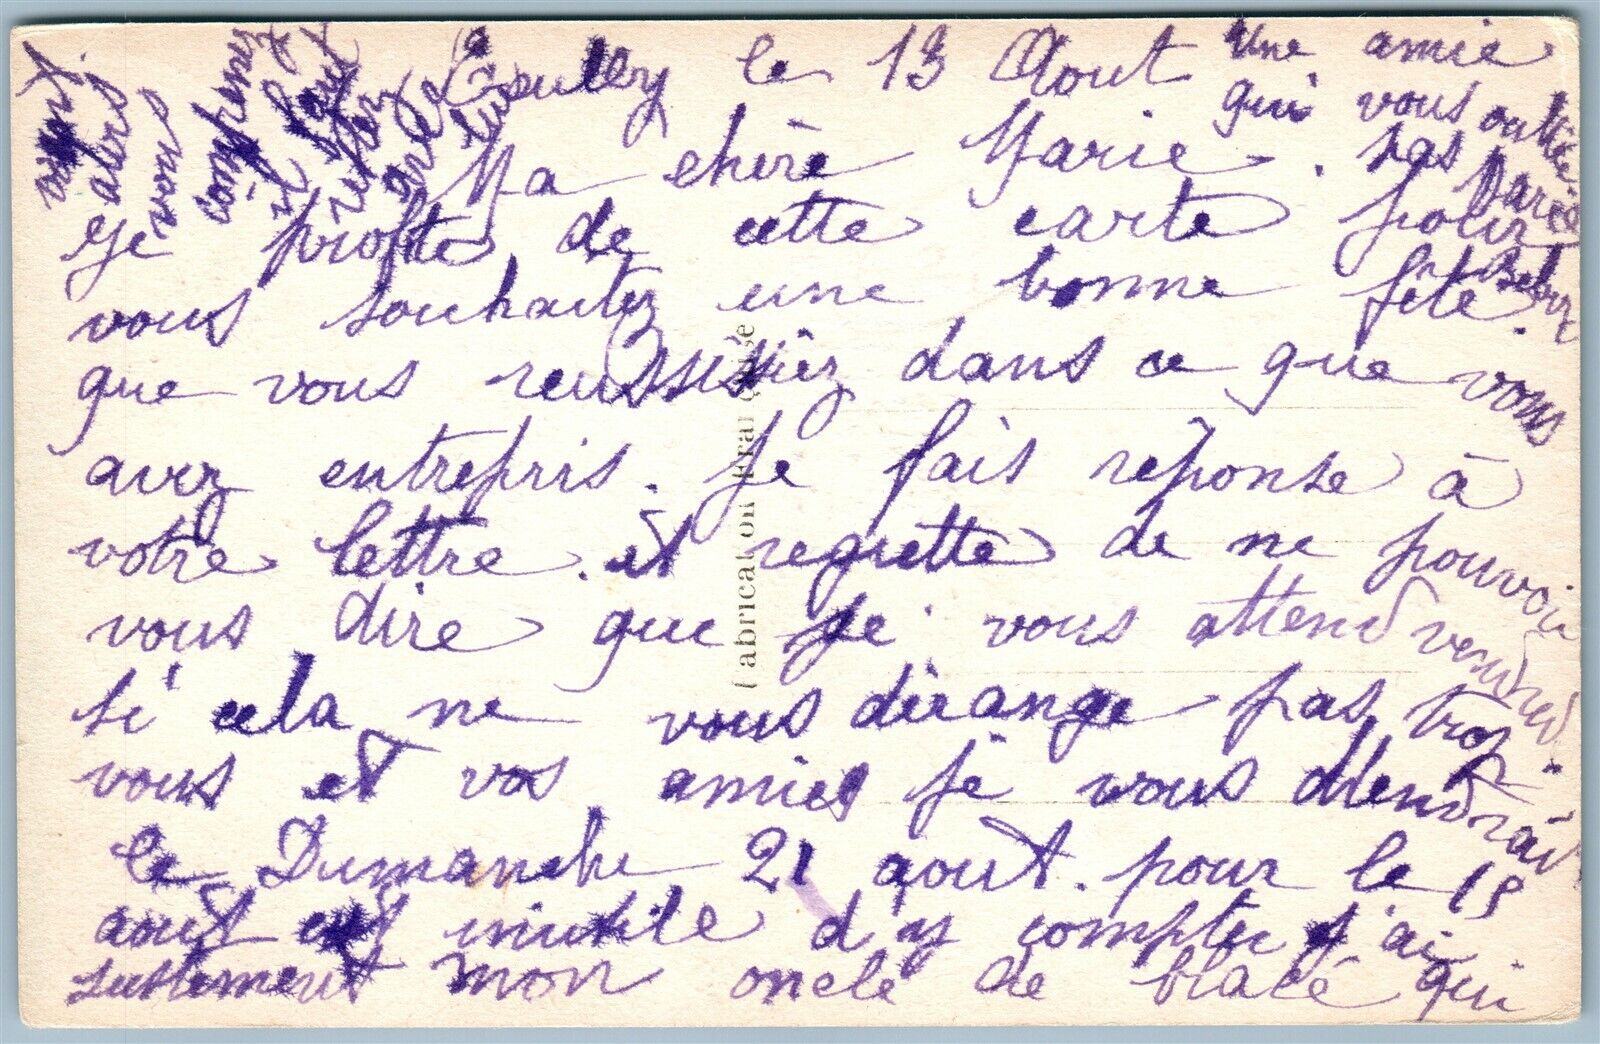 le 13 Aout
Ma chère Marie.
Je profite de cette carte pour
vous souhaiter une bonne fête.
que vous reussissiez dans ce que vous
avez entrepris. Je fais réponse à
votre lettre. et regrette de ne pouvoir
vous dire que je vous attend vendredi
si cela ne vous dérange pas trop
vous et vos amies je vous attendrai
le Dumanche 21 aout. pour le 15
août est inutile d'y compter j'ai
justement mon oncle de blacé qui
vient.
alors
vous
comprenez
il faut
rester
avec
lui
Une amie
qui vous oublie
pas
Fabrication Française